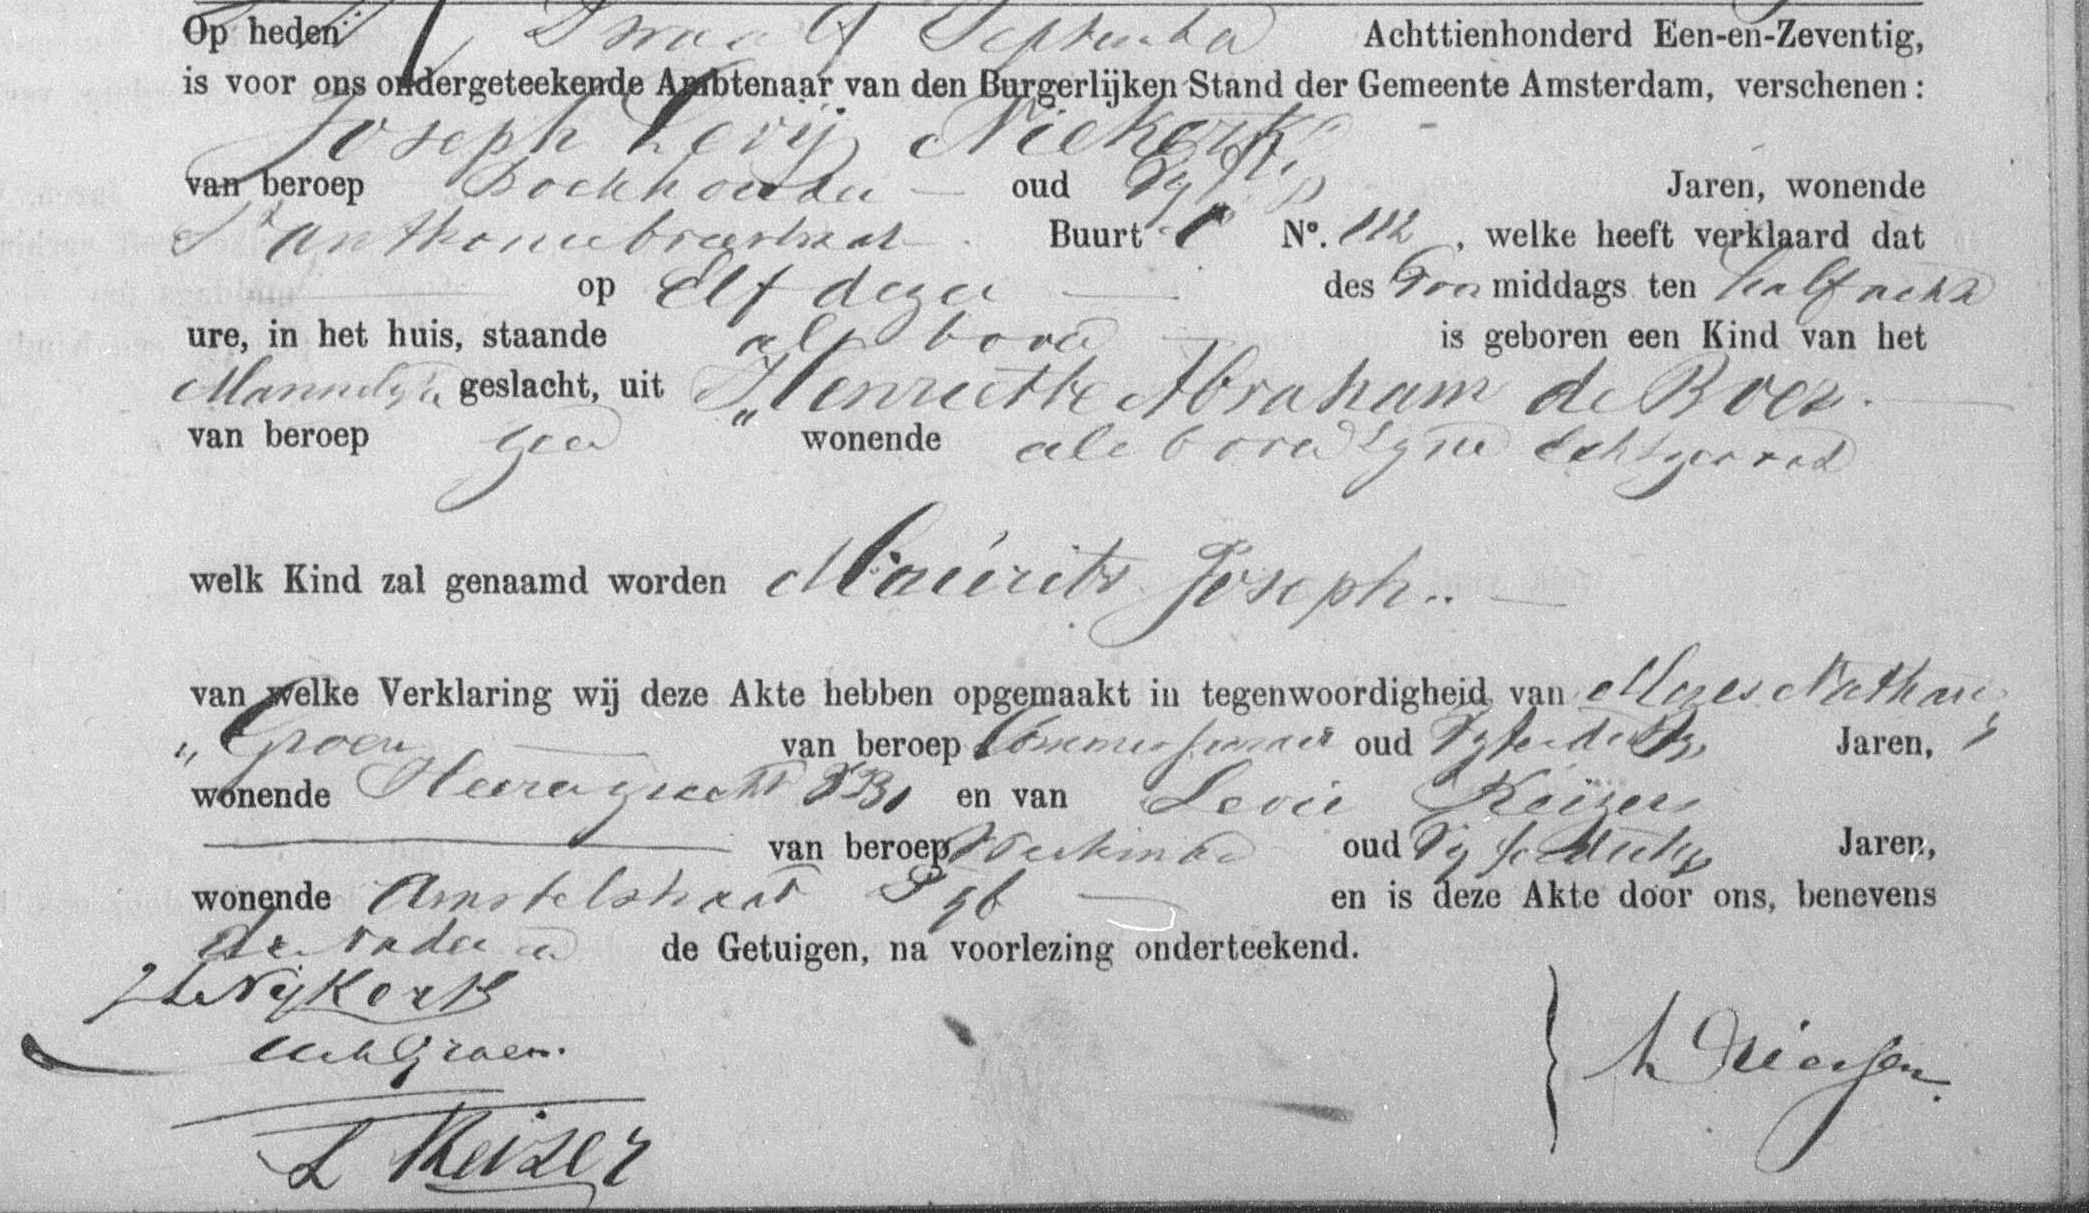 Op heden Twaalf September Achttienhonderd Een-en-Zeventig,
is voor ons ondergeteekende Ambtenaar van den Burgerlijken Stand der Gemeente Amsterdam, verschenen:
Joseph Levij Niekerk
van beroep Boekhouder oud Vyftig Jaren, wonende
St Anthoniebreestraat Buurt P No. 112, welke heeft verklaard dat
op Elf dezer des Voormiddags ten half acht
ure, in het huis, staande als boven is geboren een Kind van het
Mannelijk geslacht, uit Henriette Abraham de Boer.
van beroep geen wonende als boven zyne Echtgenoot
welk Kind zal genaamd worden Maurits Joseph..
van welke Verklaring wij deze Akte hebben opgemaakt in tegenwoordigheid van Mozes Nathan
„ Groen van beroep Commissionair oud Jaren,
wonende Heeregracht en van Levie Keizer
van beroep Werkman oud Jaren,
wonende Amstelstraat en is deze Akte door ons, benevens
den vader en de Getuigen, na voorlezing onderteekend.
J L Nijkerk
Groen.
L Keizer